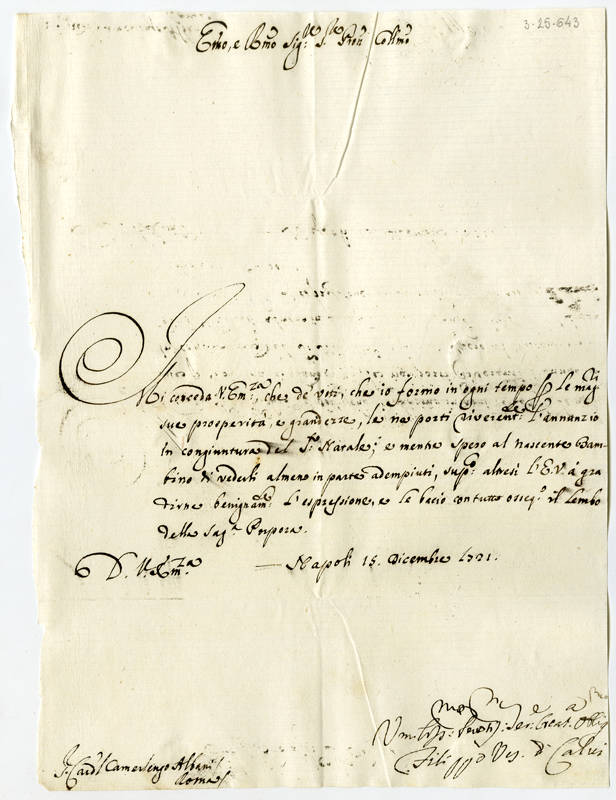 3-25-643
Emo, e Rmo Sig.re S.re Pron Colmo
Mi conceda V. Em.za, che de' voti, che io formo in ogni tempo p le magi
sue prosperità, e grandezze, le ne porti riverent.te l'annunzio
in congiuntura del S.to Natale; e mentre spero al nascente Bam-
bino di vederli almeno in parte adempiuti, sup.co altresì l'E.V. à gra
dirne benignam.te l'espressione, e le bacio con tutto osseq.o il lembo
della Sag.a Porpora.
D. V. Em.za — Napoli 15. Dicembre 1721.
Um.mo Ser.e Creat.a
Filippo Ves. di Calvi
S. Card.l Camerlengo Albani
Roma